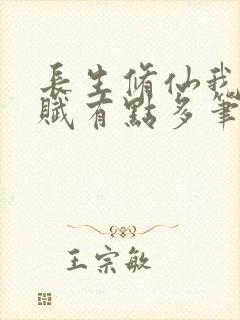 長生脩仙我
賦有點多筆
王宗敏